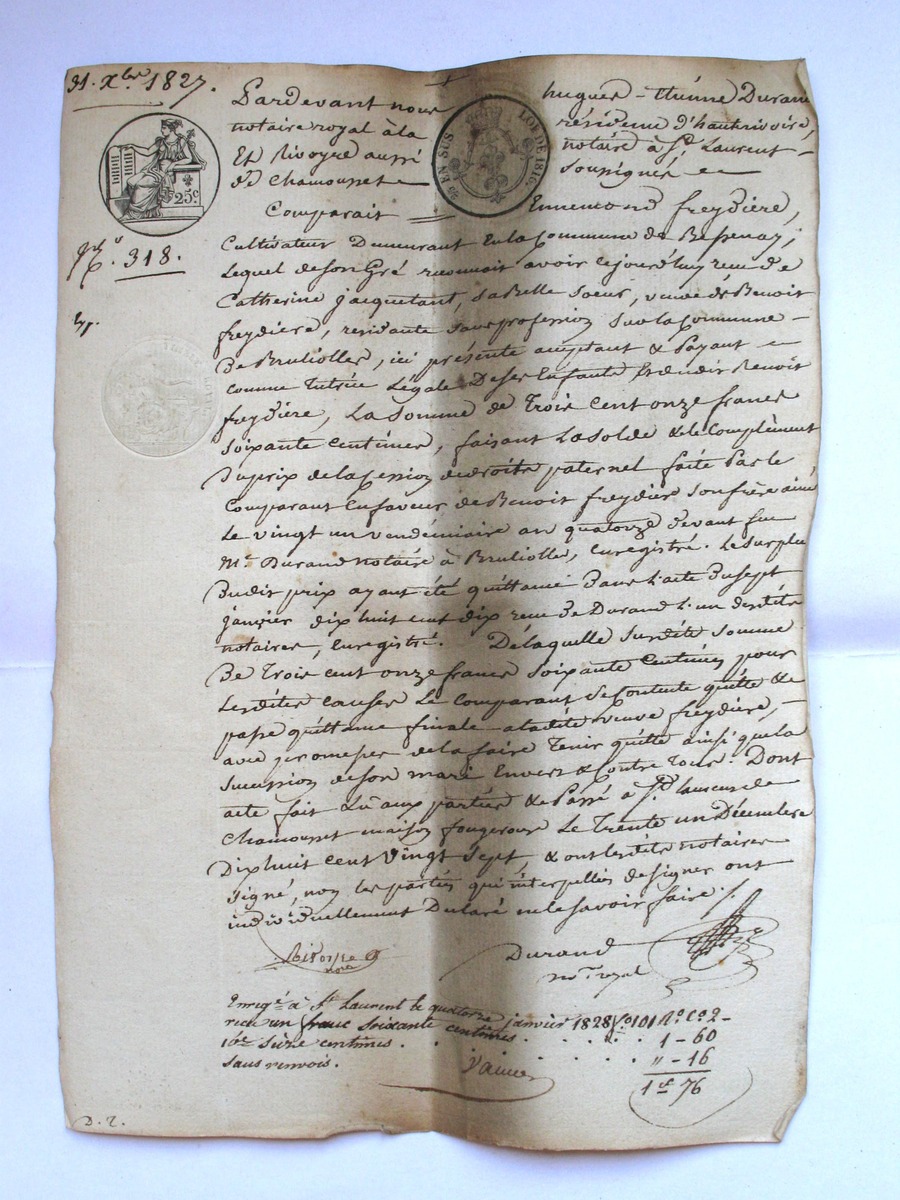 31. Xbre 1827.
Pardevant nous hugues-Étienne Durand
notaire royal à la résidence d'hauterivoire,
Et Rivoyre aussi notaire à St Laurent
de Chamousset soussignés
25c
25 EN SUS
LOI DE 1816.
Comparait Ennemond freydière,
No. 318.
Cultivateur Demeurant En la Commune de Bessenay;
Lequel de son Gré reconnait avoir cejourd'huy reçu de
Catherine jacquetant, sa Belle soeur, veuve de Benoit
freydière, residante sans profession sur la Commune
De Brullioles, ici présente acceptant & Payant
comme Tutrice Légale De ses Enfants Et dudit Benoit
freydière, La somme de Trois cent onze francs
soixante centimes, faisant La solde & le Complément
Du prix de la Cession de droits paternel faite Par le
Comparant En faveur de Benoit freydière son frère ainé
Le vingt un vendémiaire an quatorze devant feu
Me Durand notaire à Brulliolle, Enregistré. Le surplus
Dudit prix ayant été quittancé Dans l'acte Du sept
janvier dix huit cent dix reçu De Durand l'un desdits
notaires, Enregistré. De laquelle susdite somme
De Trois cent onze francs soixante Centimes pour
Lesdites causes Le Comparant se Contente quitte &
passe quittance finale a ladite veuve freydière,
avec promesse de la faire Tenir quitte ainsi que la
succession de son mari Envers & Contre Tous. Dont
acte fait Lu aux parties & Passé à St Laurent de
Chamousset maison fougerouse Le Trente un Décembre
Dix huit cent Vingt sept, & ont lesdits notaires
signé, non les parties qui interpellées de signer ont
individuellement Déclaré ne le savoir faire ./.
Rivoyre
nore
Durand
not. royal
Enregé à St Laurent le quatorze janvier 1828 fo 101 Ro Ce 2-
reçu un franc Soixante centimes. 1-60
10e Seize centimes. " -16
sans renvois. 1f 76
D. T.